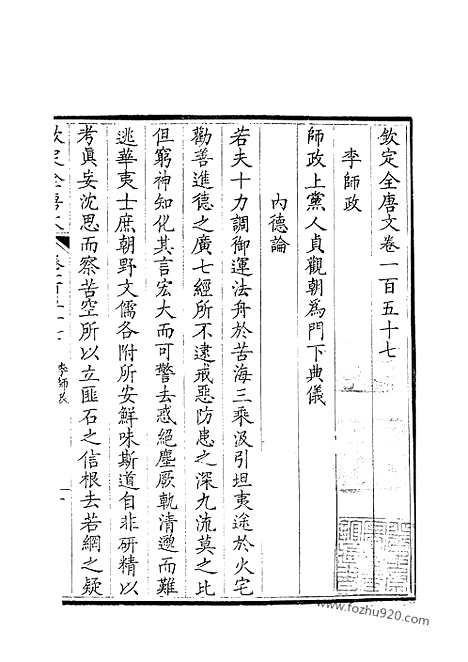 欽定全唐文卷一百五十七
李師政
師政上黨人貞觀朝爲門下典儀
內德論
若夫十力調御運法舟於苦海三乘汲引坦夷途於火宅
勸善進德之廣七經所不逮戒惡防患之深九流莫之比
但窮神知化其言宏大而可警去惑絕塵厥軌清邈而難
逃華夷士庶朝野文儒各附所安鮮味斯道自非研精以
考眞妄沈思而察苦空所以立匪石之信根去若網之疑
欽定全唐文 卷一百五十七 李師政 一
www.fozhu920.com